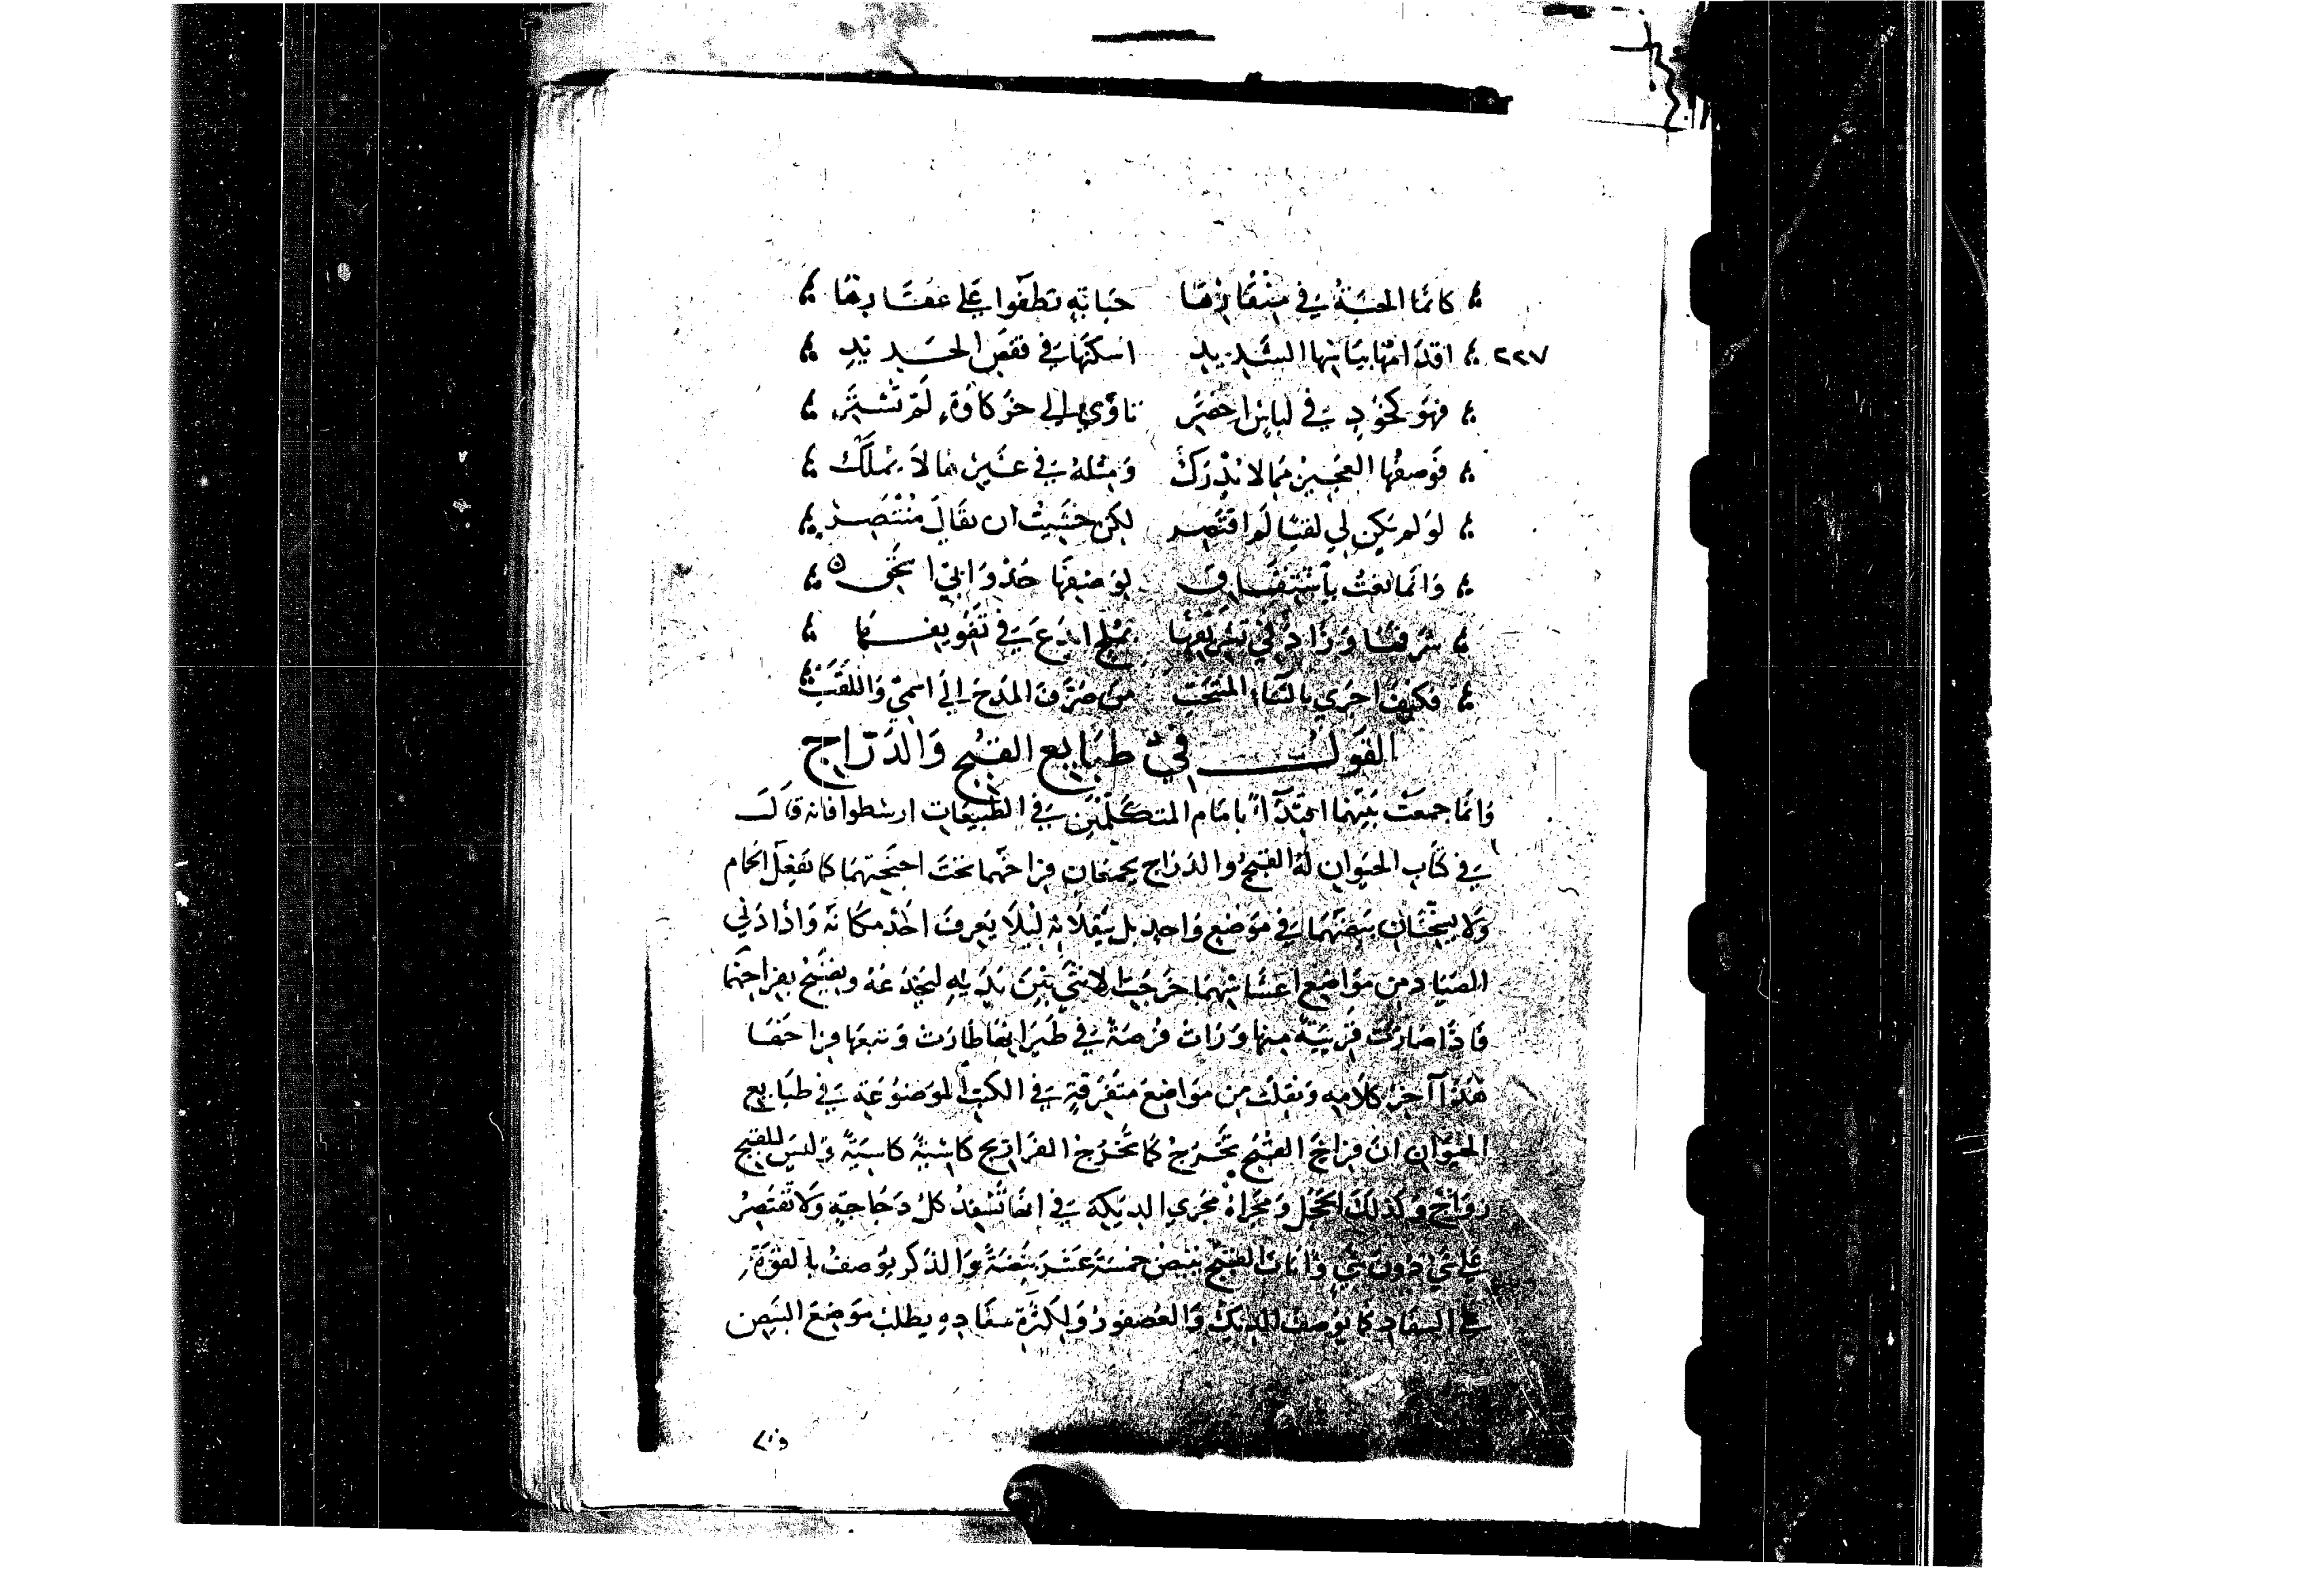 كانما الحبة في منقارها حبابة تطفوا على عقارها
٢٢٧ اقدامها ببابها الشديد اسكنها في قفص الحديد
فهو كخود في لباس اخضر تاوي الى خركاوة لم تشتر
فوصفها المعجز ما لا يدرك ومثله في غيرها لا يملك
لو لم يكن لي لقبا لم اقتصر لكن خشيت ان يقال منتصر
وانما نعت باستحقاق لوصفها حذو ابي اسحق
شرفها وزاد في تشريفها بملح ابدع في تفويفها
فكيف اجزي بالثنا المنتخب من صرف المدح الى اسمي واللقب
القول في طبايع القبج والدراج
وانما جمعت بينهما اقتداءً بامام المتكلمين في الطبيعات ارسطوا فانه قال
في كتاب الحيوان له القبج والدراج يجمعان فراخهما تحت اجنحتهما كما تفعل الحمام
ولا يبيضان بيضهما في موضع واحد بل ينقلانه ليلا يعرف احد مكانه واذا دني
الصياد من مواضع اعشاشهما خرجت الانثى بين يديه لتخدعه ويفتح بفراخهما
فاذا صارت قريبة منها ورات فرصة في طيرانها طارت وتبعها فراخها
هذا آخر كلامه ونقلت من مواضع متفرقة في الكتب الموضوعة في طبايع
الحيوان ان فراخ القبج تخرج كما تخرج الفراريج كاسية كاسبة وليس للقبج
زواج وكذلك الحجل ومجراه مجري الديكة في انها تسفد كل دجاجة ولا تقتصر
على شي دون شي واناث القبج تبيض خمسة عشر بيضة والذكر يوصف بالقوة
في السفاد كما يوصف الديك والعصفور ولكثرة سفاده يطلب موضع البيض